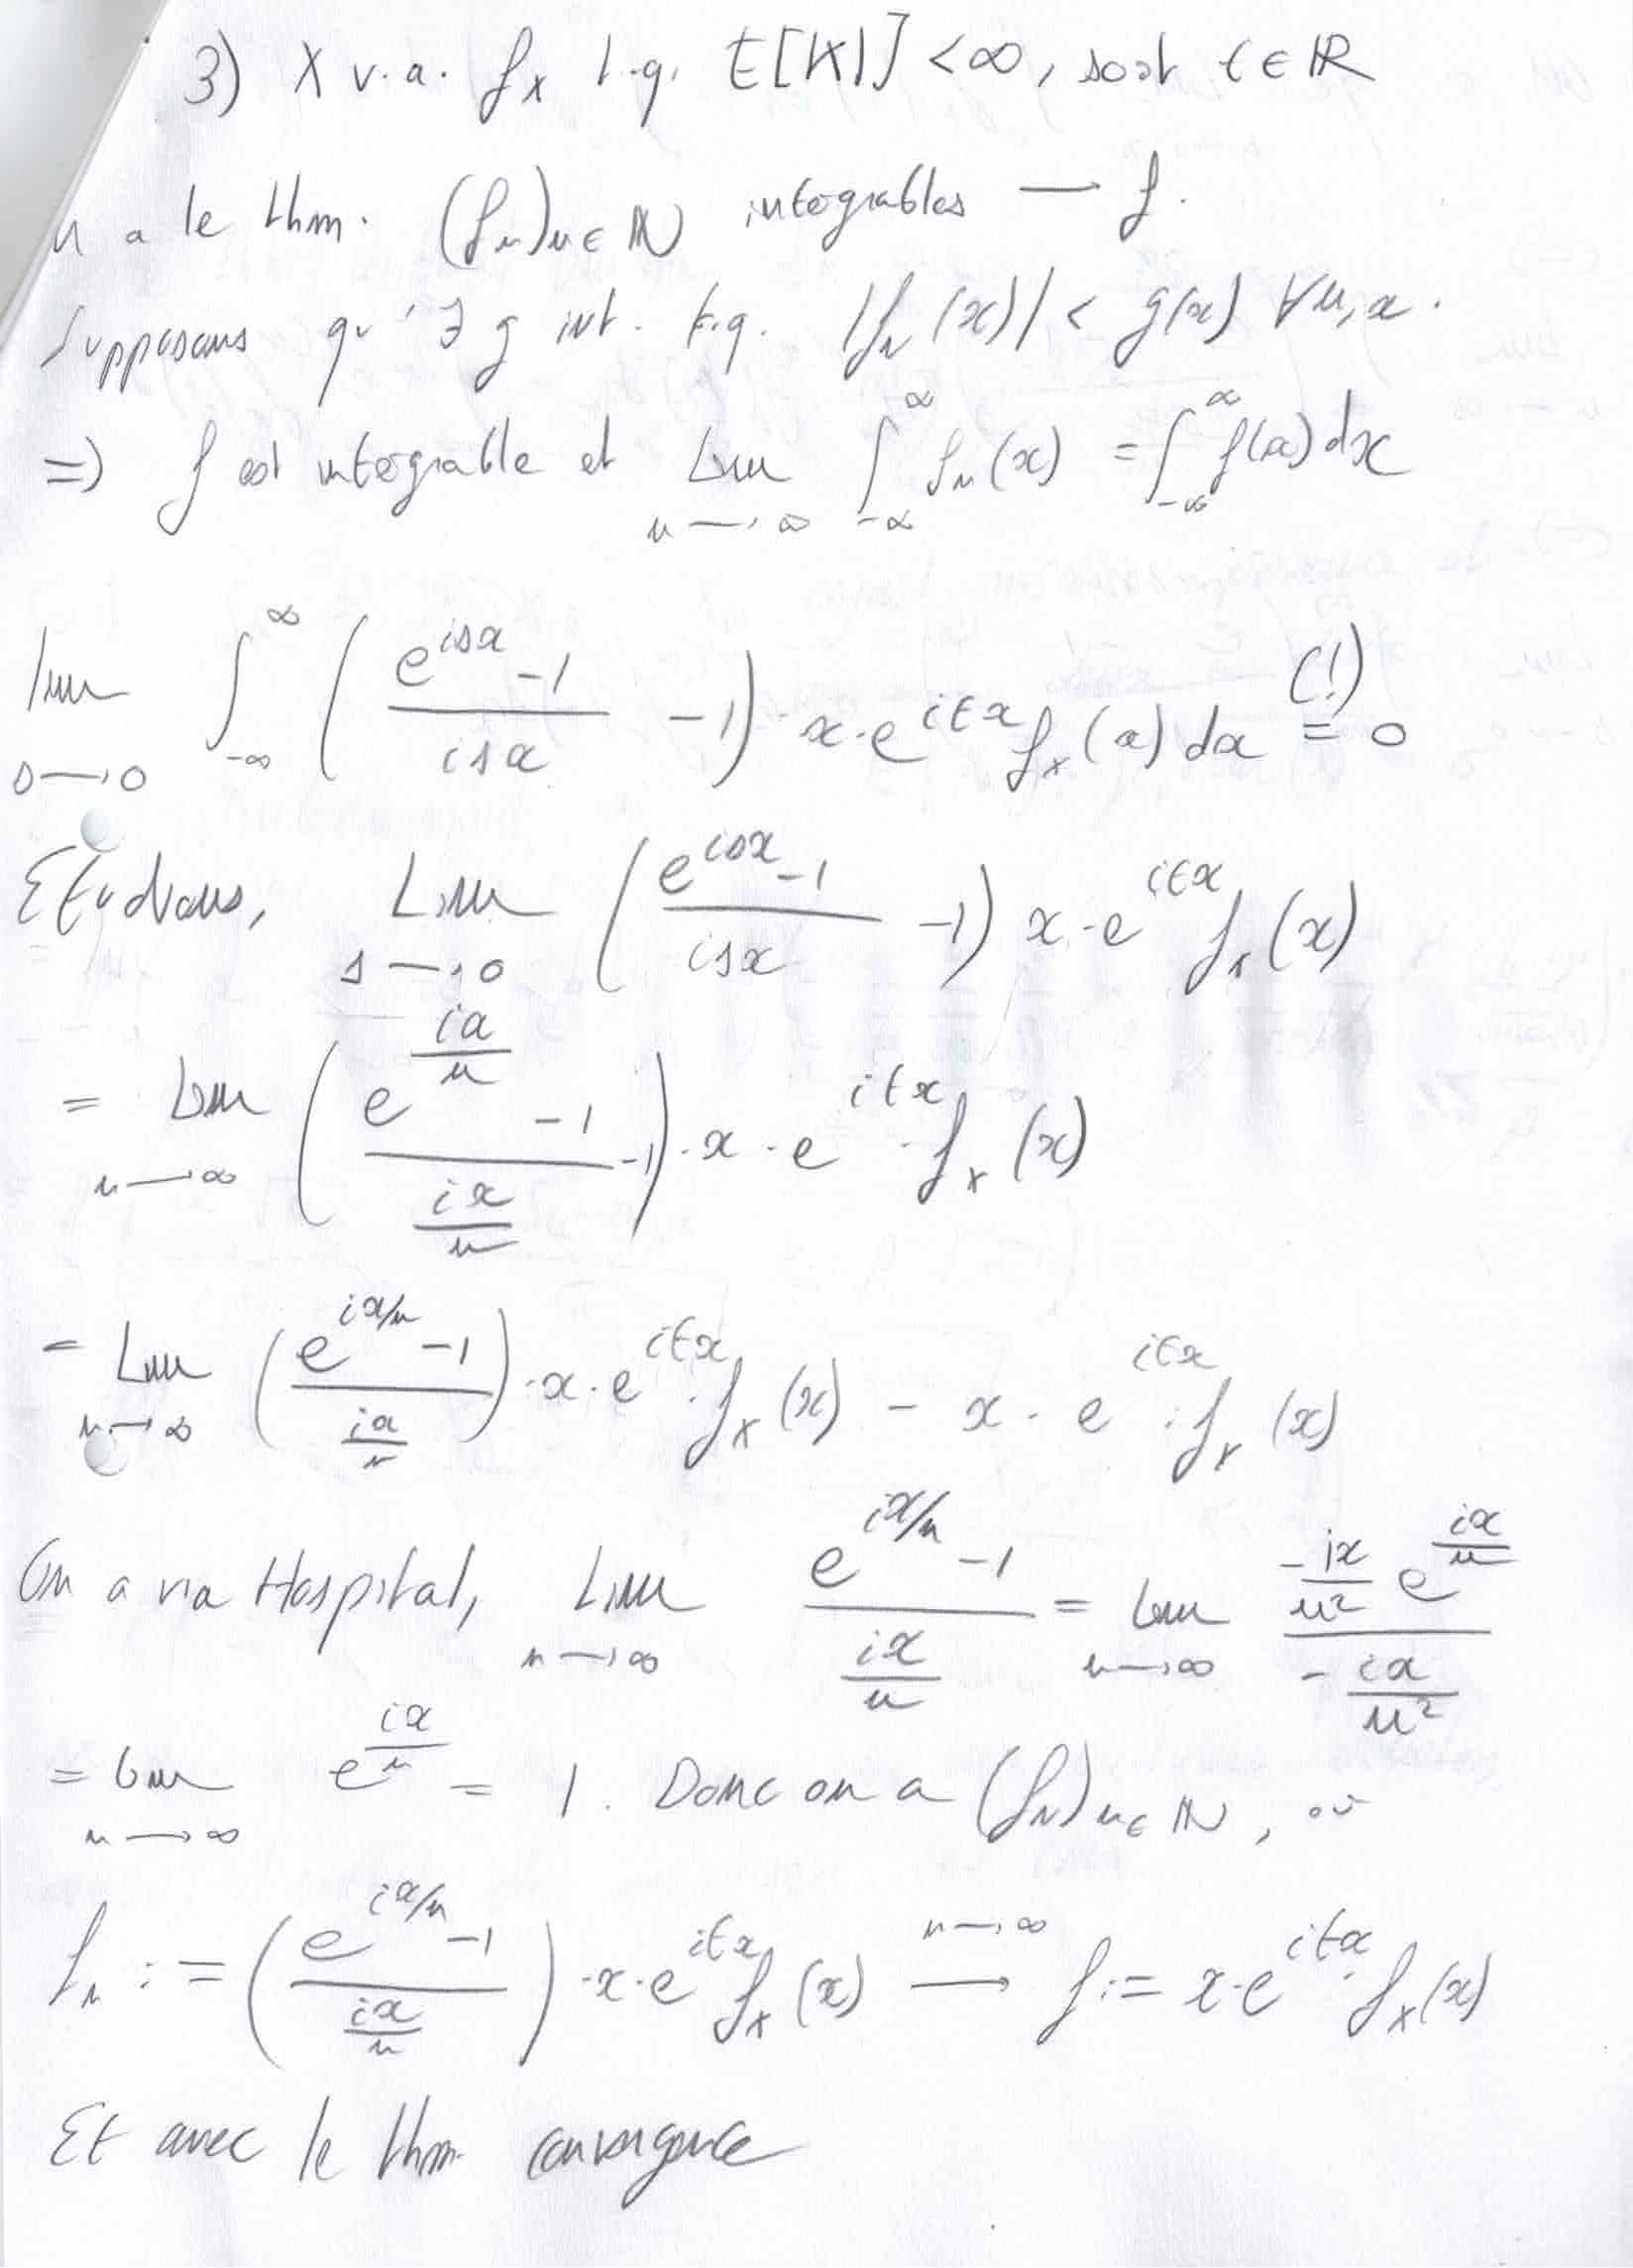 3) X v.a. f_X t.q. E[|X|] < ∞, soit t ∈ ℝ
n a le thm. (f_n)_{n ∈ ℕ} intégrables → f.
Supposons qu'∃ g int. t.q. |f_n(x)| < g(x) ∀n, x.
=> f est intégrable et Lim_{n→∞} ∫_{-∞}^{∞} f_n(x) = ∫_{-∞}^{∞} f(x) dx
lim_{s→0} ∫_{-∞}^{∞} ( (e^{isx} - 1)/(isx) - 1 ) · x · e^{itx} f_X(x) dx =^{(!)} 0
Etudions, Lim_{s→0} ( (e^{isx} - 1)/(isx) - 1 ) x · e^{itx} f_X(x)
= Lim_{n→∞} ( (e^{ix/n} - 1)/(ix/n) - 1 ) · x · e^{itx} · f_X(x)
= Lim_{n→∞} ( (e^{ix/n} - 1)/(ix/n) ) · x · e^{itx} · f_X(x) - x · e^{itx} · f_X(x)
On a via Hospital, Lim_{n→∞} (e^{ix/n} - 1)/(ix/n) = Lim_{n→∞} (-ix/n² e^{ix/n})/(-ix/n²)
= Lim_{n→∞} e^{ix/n} = 1. Donc on a (f_n)_{n ∈ ℕ}, où
f_n := ( (e^{ix/n} - 1)/(ix/n) ) · x · e^{itx} f_X(x) →^{n→∞} f := x · e^{itx} · f_X(x)
Et avec le thm convergence